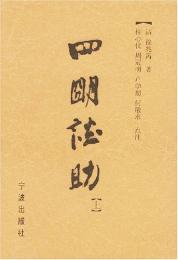 [清]徐兆昺 著
桂心仪 周冠明 卢学恕 何敏求 点注
四明談助
[上]
宁波出版社